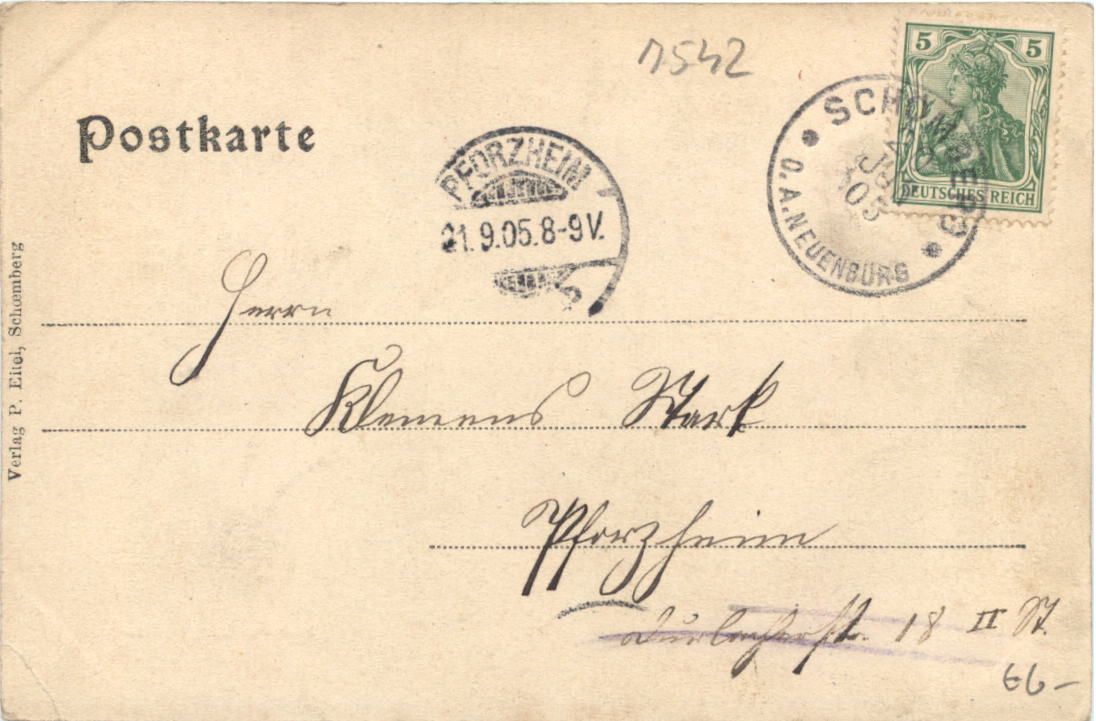 n542
5 5
DEUTSCHES REICH
SCHÖMBERG
O.A. NEUENBÜRG
05
Postkarte
PFORZHEIM
21.9.05.8-9V.
Verlag P. Eitel, Schœmberg
Herrn
Klemens Stark
Pforzheim
Durlacherstr. 18 II St.
66-